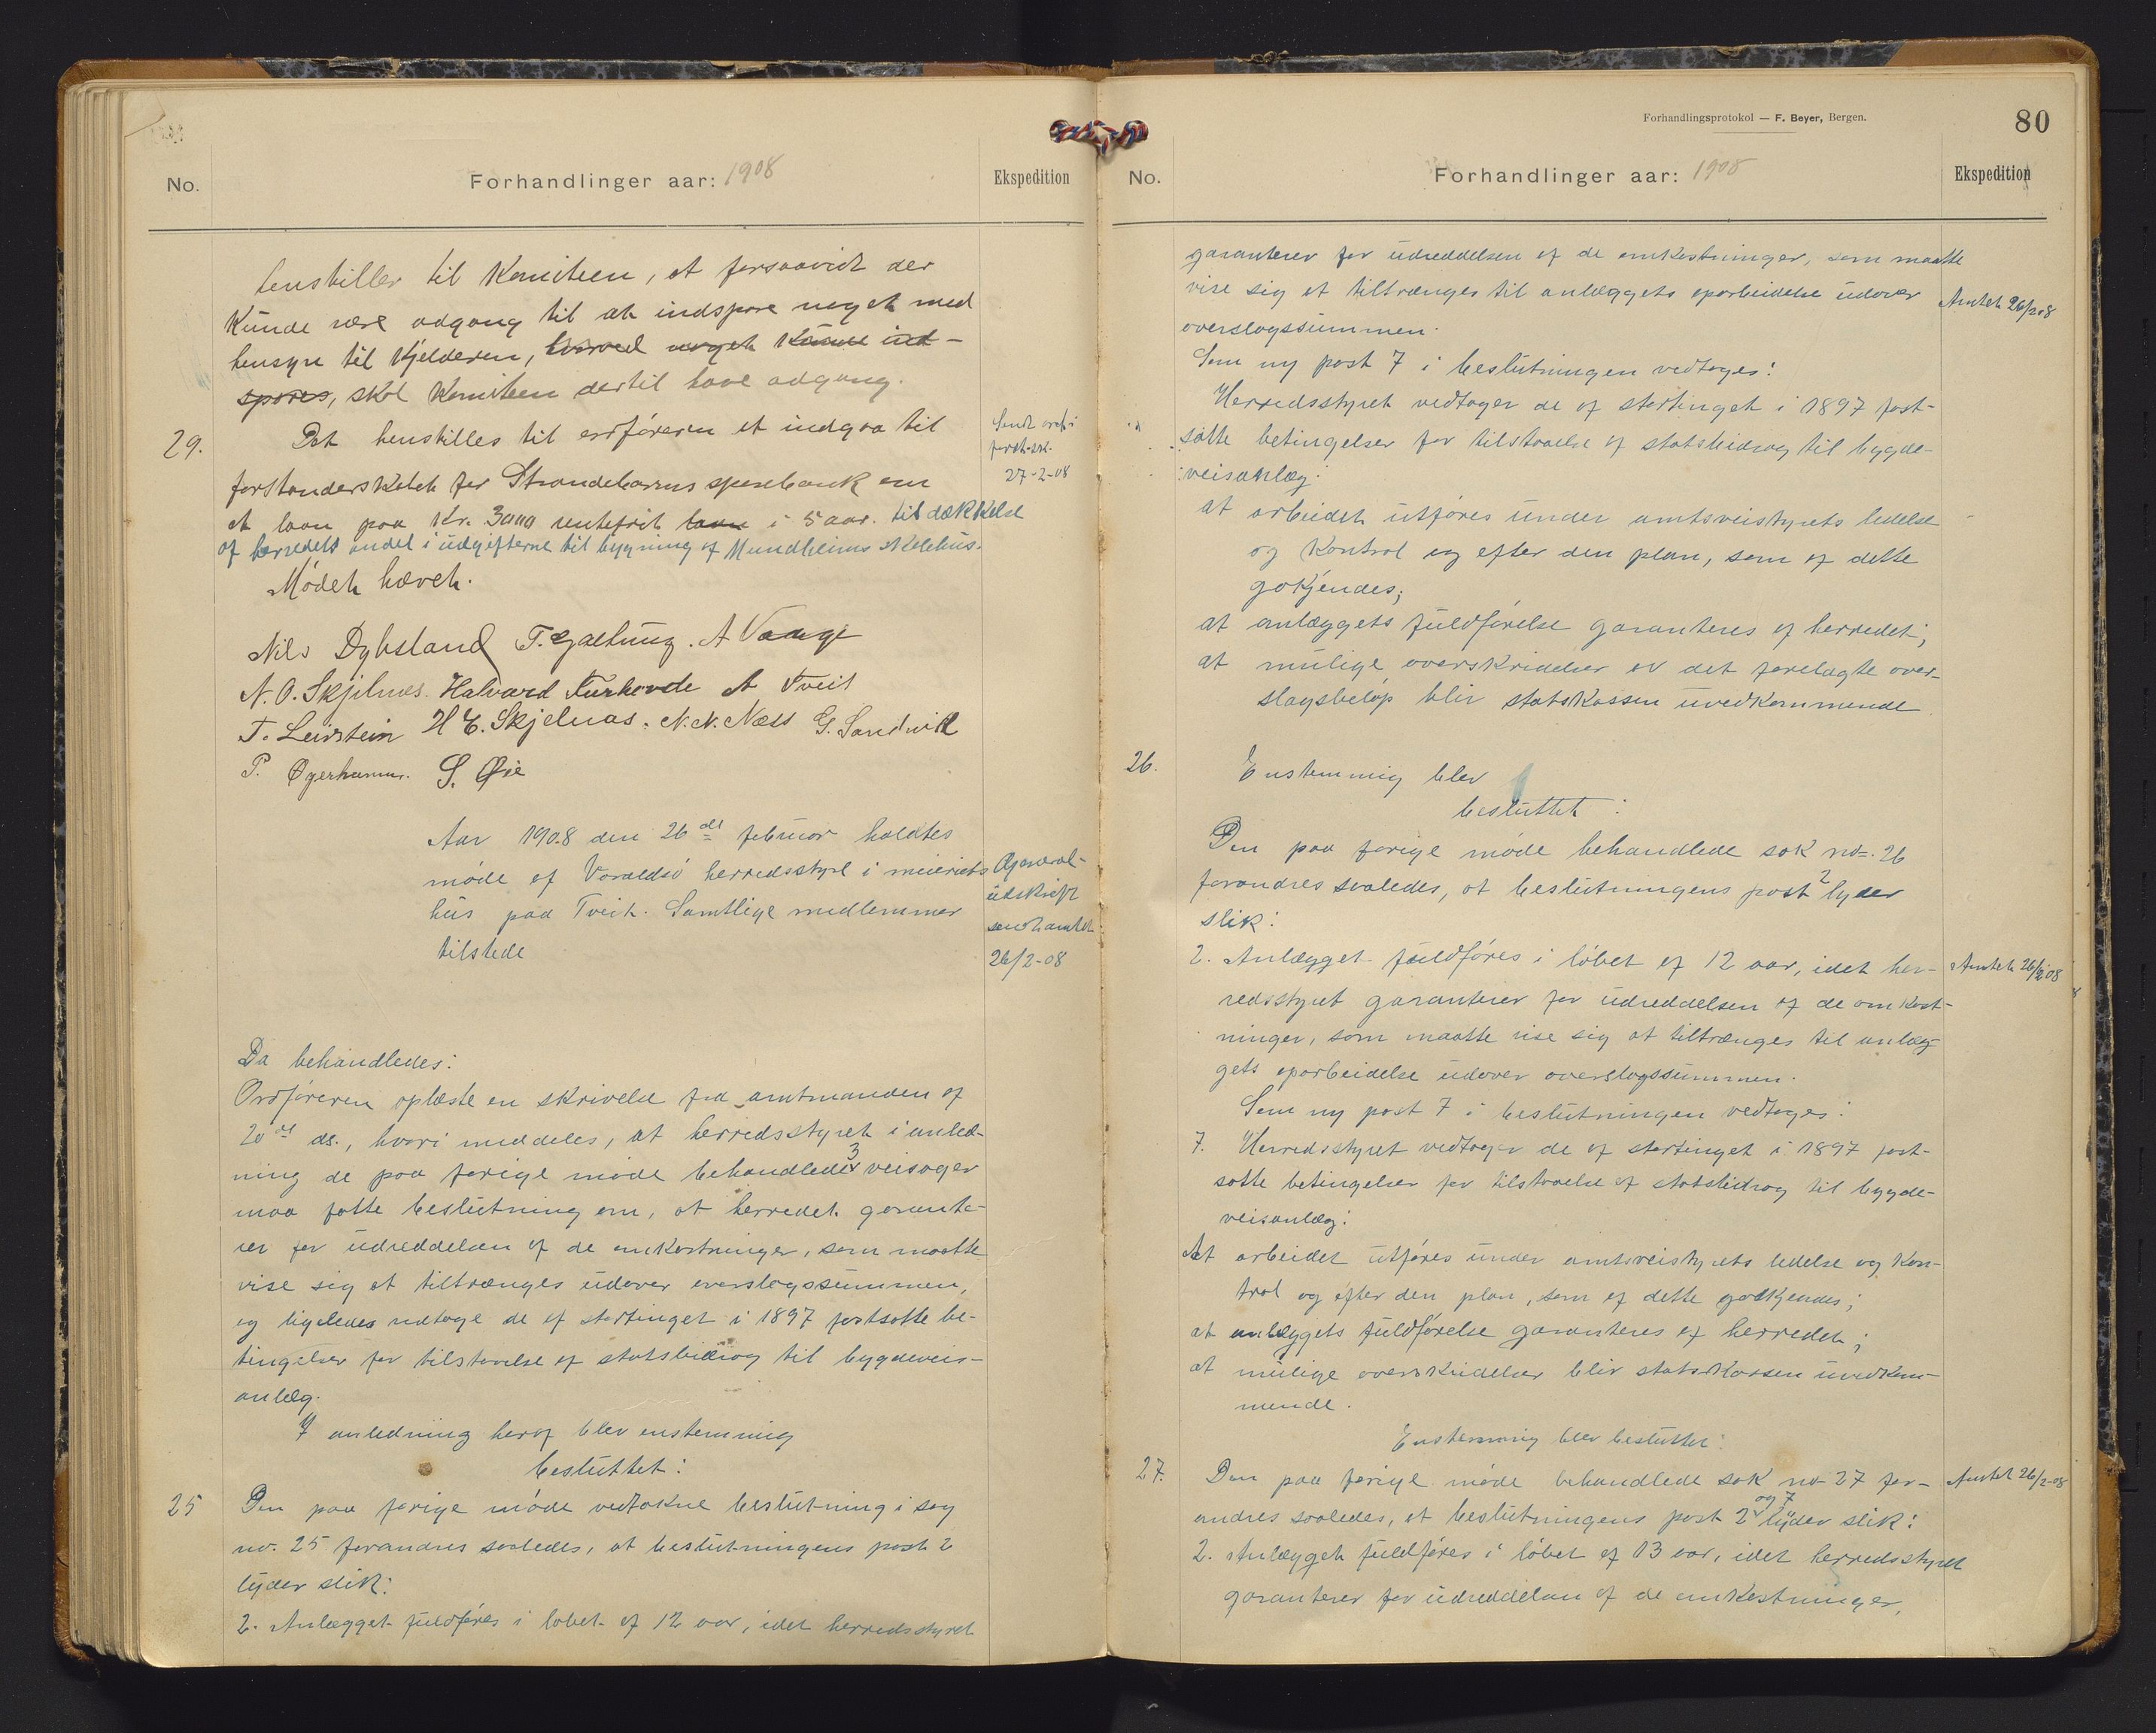 No.
Forhandlinger aar: 1908
Ekspedition
henstiller til Komiteen, at forsaavidt der
Kunde være adgang til at indspare noget med
hensyn til Kjelderen, hvorved noget Kunde ind-
spares, skal Komiteen dertil have adgang.
29. Det henstilles til ordføreren at indgaa til
forstanderskabet for Strandebarms sparebank om
et laan paa Kr. 3000 rentefrit laan i 5 aar. til dækkelse
af herredets andel i udgifterne til bygning af Mundheims skolehus.
Mødet hævet.
27-2-08
Nils Dybsland T. Gjælhung. A Vaage
N. O. Skjelnes. Halvard Turhovde A Tveit
T. Leirstein H E. Skjelnas. N. N. Næss G. Sandvik
P. Øyerhamn. S. Øie
Aar 1908 den 26de februar holdtes
møde af Varaldsø herredsstyre i meieriets
hus paa Tveit. Samtlige medlemmer
tilstede
General-
udskrift
sendt amtet
26/2-08
Da behandledes:
Ordføreren oplæste en skrivelse fra amtmanden af
20de ds., hvori meddeles, at herredsstyret i anled-
ning de paa forige møde behandlede 3 veisager
maa fatte beslutning om, at herredet garante-
rer for udreddelsen af de omkostninger, som maatte
vise sig at tiltrænges udover overslagssummen,
og ligeledes vedtage de af stortinget i 1897 fastsatte be-
tingelser for tilstaaelse af statsbidrag til bygdeveis-
anlæg.
I anledning heraf blev enstemmig
besluttet:
25 Den paa forige møde vedtakne beslutning i sag
no. 25 forandres saaledes, at beslutningens post 2
lyder slik:
2. Anlægget fuldføres i løbet af 12 aar, idet herredsstyret
Forhandlingsprotokol — F. Beyer, Bergen.
80
No.
Forhandlinger aar: 1908
Ekspedition
garanterer for udreddelsen af de omkostninger, som maatte
vise sig at tiltrænges til anlæggets oparbeidelse udover
overslagssummen.
Amtet 26/2 08
Som ny post 7 i beslutningen vedtages:
Herredsstyret vedtager de af stortinget i 1897 fast-
satte betingelser for tilstaaelse af statsbidrag til bygde-
veisanlæg:
at arbeidet utføres under amtsveistyrets ledelse
og Kontrol og efter den plan, som af dette
gokjendes;
at anlæggets fuldførelse garanteres af herredet;
at mulige overskridelser av det forelagte over-
slagsbeløp blir statskassen uvedkommende
26. Enstemmig blev
besluttet:
Den paa forige møde behandlede sak no. 26
forandres saaledes, at beslutningens post 2 lyder
slik:
2. Anlægget fuldføres i løbet af 12 aar, idet her-
redsstyret garanterer for udreddelsen af de omkost-
ninger, som maatte vise sig at tiltrænges til anlæg-
gets oparbeidelse udover overslagssummen.
Amtet 26/2 08
Som ny post 7 i beslutningen vedtages:
7. Herredsstyret vedtager de af stortinget i 1897 fast-
satte betingelser for tilstaaelse af statsbidrag til bygde-
veisanlæg:
At arbeidet utføres under amtsveistyrets ledelse og Kon-
trol og efter den plan, som af dette godkjendes;
at anlæggets fuldførelse garanteres af herredet;
at mulige overskridelser blir statskassen uvedkom-
mende.
Enstemmig blev besluttet:
27. Den paa forige møde behandlede sak no 27 for-
andres saaledes, at beslutningens post 2 og 7 lyder slik:
2. Anlægget fuldføres i løbet af 13 aar, idet herredsstyret
garanterer for udreddelsen af de omkostninger,
Amtet 26/2-08